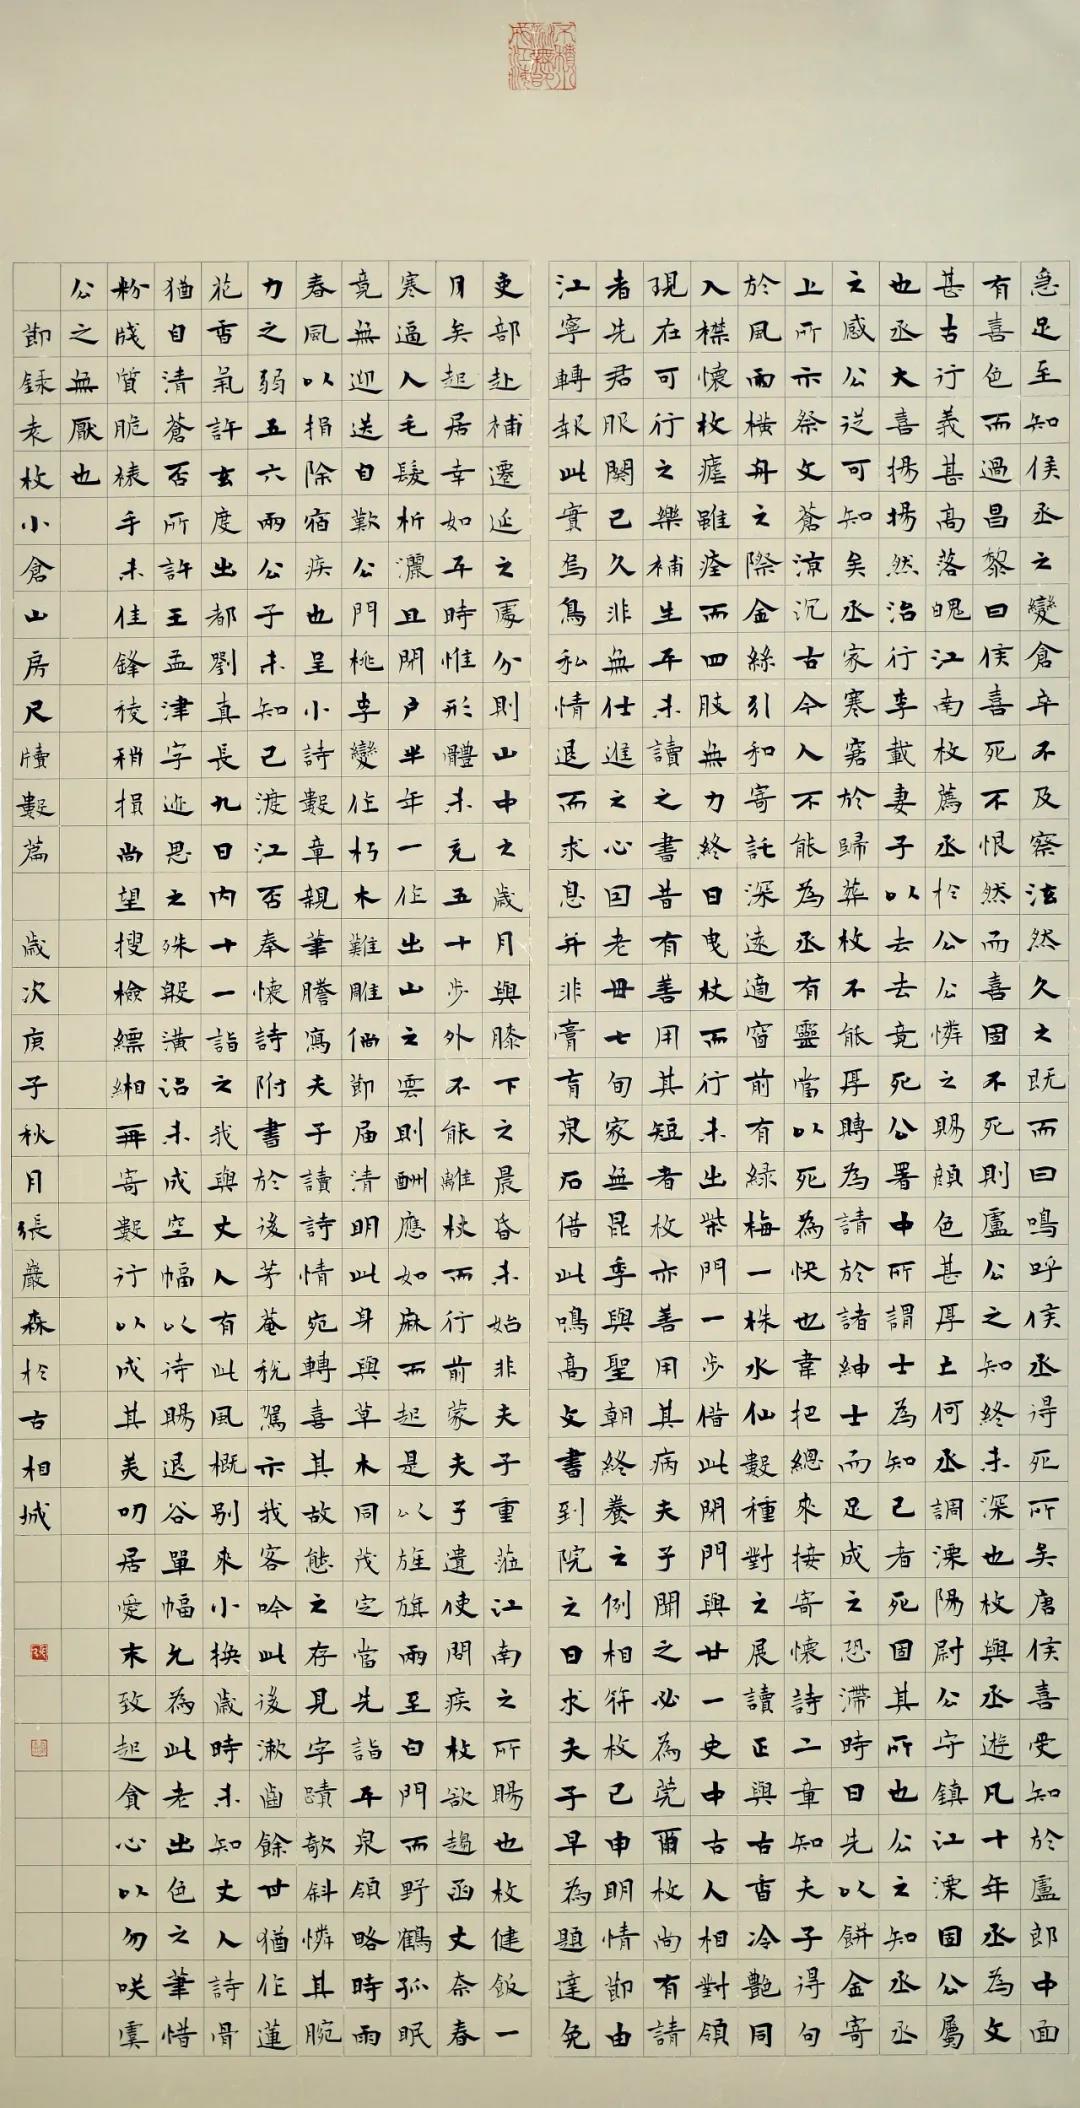 急足至知侯丞之變倉卒不及察泫然久之既而曰嗚呼侯丞得死所矣唐侯喜受知於盧郎中面
有喜色而過昌黎曰侯喜死不恨然而喜固不死則盧公之知終未深也枚與丞遊凡十年丞為文
甚古行義甚高落魄江南枚薦丞於公公憐之賜顏色甚厚土何丞調溧陽尉公守鎮江溧固公屬
也丞大喜揚揚然治行李載妻子以去去竟死公署中所謂士為知己者死固其所也公之知丞丞
之感公從可知矣丞家寒窘於歸葬枚不能厚賻為請於諸紳士而足成之恐滯時日先以餅金寄
上所亦祭文蒼涼沉古今人不能為丞有靈當以死為快也韋把總來接寄懷詩二章知夫子得句
於風雨橫舟之際金絲引和寄託深遠適窗前有綠梅一株水仙數種對之展讀正與古香冷艷同
入襟懷枚瘧雖痊而四肢無力終日曳杖而行未出柴門一步借此閉門與廿一史中古人相對領
現在可行之樂補生平未讀之書昔有善用其短者枚亦善用其病夫子聞之必為莞爾枚尚有請
者先君服闋已久非無仕進之心因老毋七旬家無昆季與聖朝終養之例相符枚已申明情節由
江寧轉報此實烏鳥私情退而求息并非膏肓泉石借此鳴高文書到院之日求夫子早為題達免
吏部赴補遷延之處分則山中之歲月與膝下之晨昏未始非夫子重蒞江南之所賜也枚健飯一
月矣起居幸如平時惟形體未充五十步外不能離杖而行前蒙夫子遺使問疾枚欲趨函丈奈春
寒逼人毛髮析灑且閉戶半年一作出山之雲則酬應如麻而起是以旌旗雨至白門而野鶴孤眠
竟無迎送自歎公門桃李變作朽木難雕倘節屆清明此身與草木同茂定當先詣平泉領略時雨
春風以捐除宿疾也呈小詩數章親筆謄寫夫子讀詩情宛轉喜其故態之存見字蹟欹斜憐其腕
力之弱五六兩公子未知已渡江否奉懷詩附書於後芳菴稅駕亦我客吟此後漱齒餘甘猶作蓮
花香氣許玄度出都劉真長九日內十一詣之我與丈人有此風概别來小換歲時未知丈人詩骨
猶自清蒼否所許王孟津字迹思之殊殷潢治未成空幅以待賜退谷單幅允為此老出色之筆惜
粉牋質脆裱手未佳鋒稜稍損尚望搜檢縹緗再寄數行以成其美叨居愛末致起貪心以勿咲虞
公之無厭也
節錄袁枚小倉山房尺牘數篇 歲次庚子秋月張嚴森於古相城